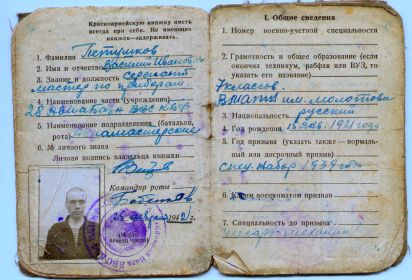 Красноармейскую книжку иметь
всегда при себе. Не имеющих
книжек—задерживать.
1. Фамилия Петушков
2. Имя и отчество Василий Иванович
3. Звание и должность сержант
мастер по приборам.
4. Наименование части (учреждения)
28
5. Наименование подразделения (батальон,
рота)
6. № личного знака
Личная подпись владельца книжки
Командир роты
25 февраля 1942 г.
I. Общие сведения
1. Номер военно-учетной специальности
2. Грамотность и общее образование (если
окончил техникум, рабфак или ВУЗ, то
указать его название)
7 классов.
им. Молотова
3. Национальность русский
4. Год рождения 15 янв. 1921 года
5. Год призыва (указать также — нормаль-
ный или досрочный призыв)
спец. набор 1939 год
6. Каким военкоматом призван
7. Специальность до призыва
слесарь-механик